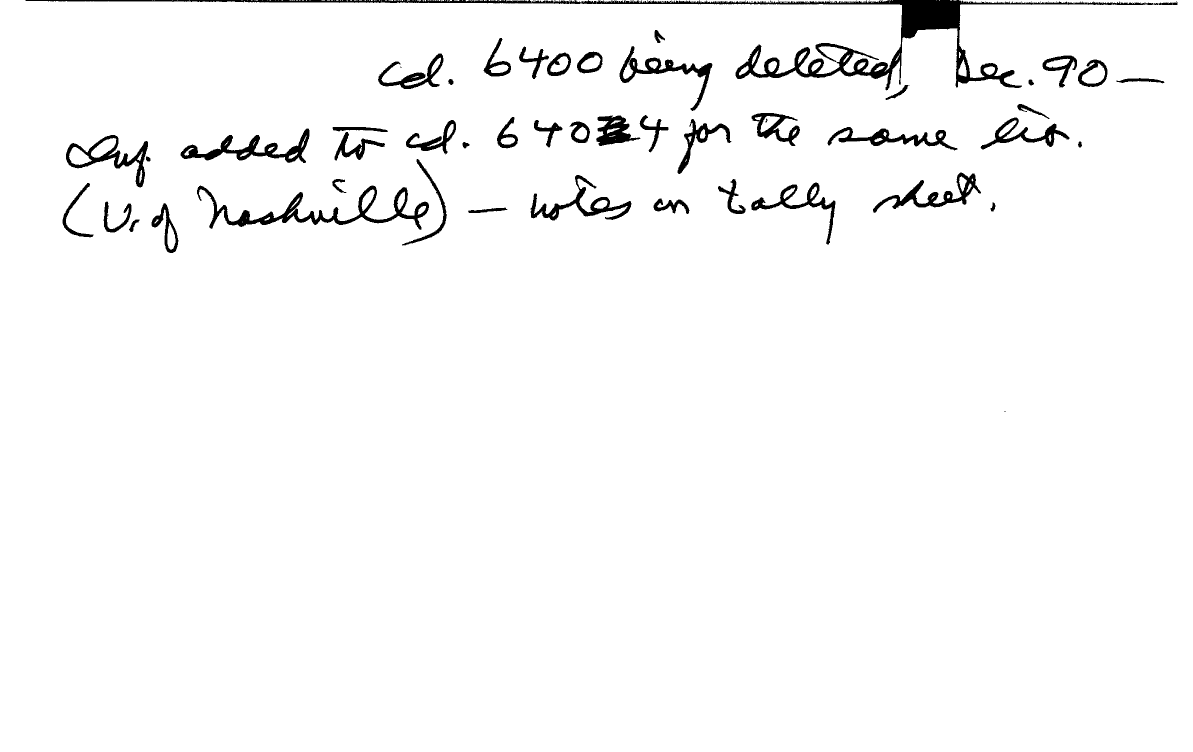 cd. 6400 being deleted, Dec. 90 —
Inf. added to cd. 6404 for the same lib.
(U. of Nashville) — notes on tally sheet.